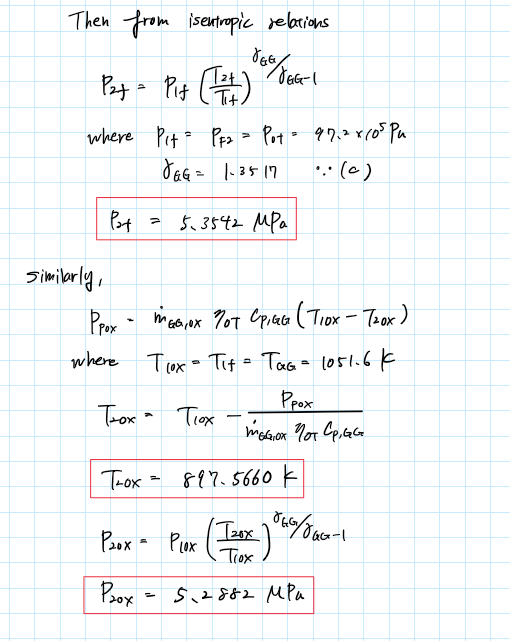 Then from isentropic relations
P2f = P1f (T2f/T1f)^(γGG/γGG-1)
where P1f = PF2 = P0t = 97.2 x 10^5 Pa
γGG = 1.3517 ∵ (c)
P2f = 5.3542 MPa
Similarly,
Ppox = ṁGG,ox ηOT Cp,GG (T1ox - T2ox)
where T1ox = T1f = TGG = 1051.6 K
T2ox = T1ox - Ppox / ṁGG,ox ηOT Cp,GG
T2ox = 897.5660 K
P2ox = P1ox (T2ox/T1ox)^(γGG/γGG-1)
P2ox = 5.2882 MPa